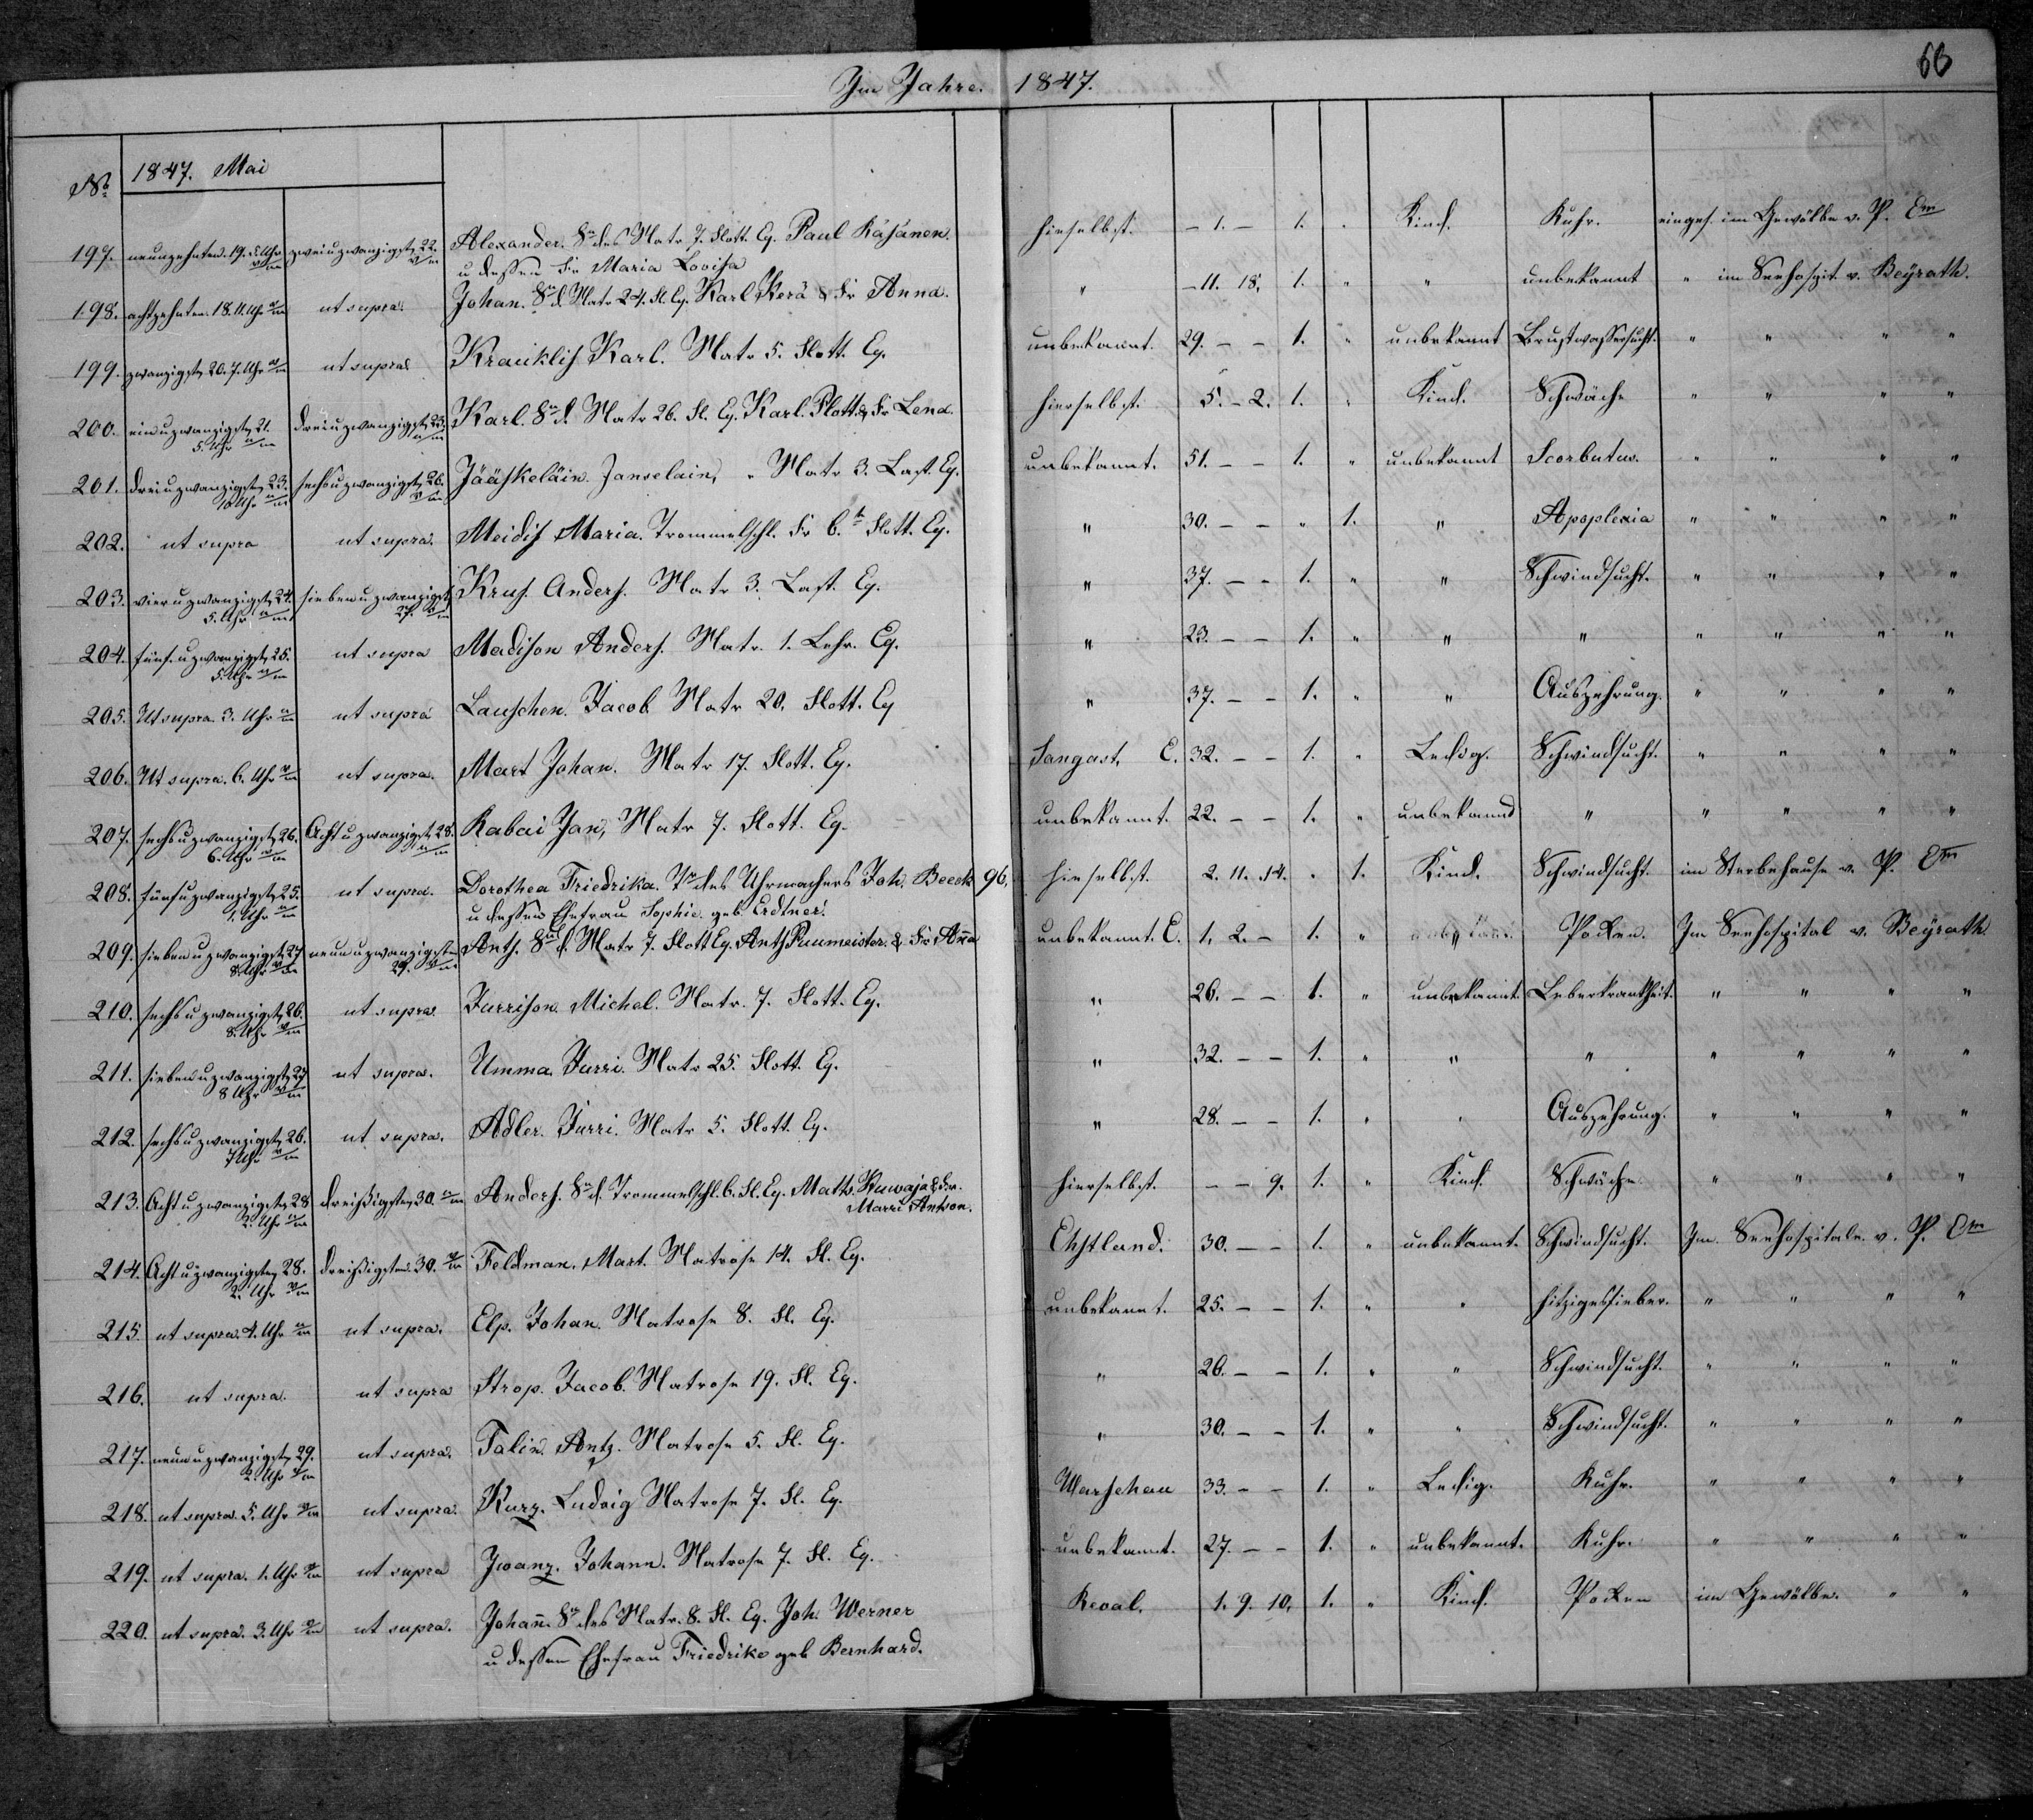 Im Jahre. 1847.
63
No. 1847. Mai
197. neunzehnten. 19. 5. Uhr zweiuzwanzigst. 22. Alexander. Sn des Matr. 7. Flott. Eq. Paul Käsänen. hieselbst. - 1. - 1. " Kind. Ruhr. einges. im Gewölbe v. P. Em
u dessen Fr Maria Lovisa
198. achtzehnten. 18. 11. Uhr ut supra. Johan. Sn d. Matr 24. Fl. Eq. Karl Kerä & Fr Anna. " - 11. 18. 1. " " unbekannt " im Seehospit v. Beÿrath.
199. zwanzigst. 20. 7. Uhr ut supra Krauklis Karl. Matr 5. Flott. Eq. unbekannt. 29. - - 1. " unbekannt Brustwassersucht. " " " "
200. einuzwanzigst. 21. dreiuzwanzigst. 23. Karl. Sn d. Matr 26. Fl. Eq. Karl. Plott. & Fr Lena. hierselbst. 5. - 2. 1. " Kind. Schwäche " " " "
5. Uhr
201. dreiuzwanzigst. 23. sechsuzwanzigst. 26. Jääskeläin. Janselain, " Matr 3. Last. Eq. unbekannt. 51. - - 1. " unbekannt Scorbutus. " " " "
10 Uhr
202. ut supra ut supra. Meidis Maria. Trommelschl. Fr 6. Flott. Eq. " 30. - - " 1. " Apoplexia " " " "
203. vieruzwanzigst. 24. siebenuzwanzigst. Krus. Anders. Matr 3. Last. Eq. " 37. - - 1. " " Schwindsucht. " " " "
5. Uhr 27.
204. fünfuzwanzigst. 25. ut supra Madison Anders. Matr. 1. Lehr. Eq. " 23. - - 1. " " " " " " "
5. Uhr
205. Ut supra. 3. Uhr ut supra Lauschen. Jacob Matr 20. Flott. Eq " 37. - - 1. " " Auszehrung. " " " "
206. Ut supra. 6. Uhr ut supra. Mart Johan. Matr 17. Flott. Eq. Sangast, E. 32. - - 1. " Ledig. Schwindsucht. " " " "
207. sechsuzwanzigst. 26. Acht u zwanzigst. 28. Rabai Jan, Matr 7. Flott. Eq. unbekannt. 22. - - 1. " unbekannt " " " " "
6. Uhr
208. fünfuzwanzigst. 25. ut supra. Dorothea Friedrika. Tr des Uhrmachers Joh. Beeck 96. hieselbst. 2. 11. 14. " 1. Kind. Schwindsucht. im Sterbehause v. P. Em
1. Uhr u dessen Ehefrau Sophie. geb. Erdtner.
209. siebenuzwanzigst. 27 neunuzwanzigsten Ants. Sn d. Matr 7. Flott Eq. Ants Puumeister. & Fr Aña unbekannt. E. 1. 2. - 1. " Pocken. Im Seehospital v. Beÿrath
8. Uhr 29.
210. sechsuzwanzigst. 26. ut supra Jurrison. Michel. Matr. 7. Flott. Eq. " 26. - - 1. " unbekannt. Leberkrankheit. " " " "
8. Uhr
211. siebenuzwanzigst. 27 ut supra. Umma. Jurri. Matr 25. Flott. Eq. " 32. - - 1. " " " " " " "
8 Uhr
212. sechsuzwanzigst. 26. ut supra. Adler. Jurri. Matr 5. Flott. Eq. " 28. - - 1. " " Auszehrung. " " " "
7 Uhr
213. Acht u zwanzigst. 28 dreißigsten 30. Anders. Sn d. Trommelschl. 6. Fl. Eq. Matts. Kuwaja & Fr. hierselbst. - - 9. 1. " Kind. Schwäche " " " "
2. Uhr Marri Antson.
214. Acht u zwanzigsten 28. dreißigsten 30. Feldman. Mart. Matrose 14. Fl. Eq. Ehstland. 30. - - 1. " unbekannt. Schwindsucht. Im Seehospitale v. P. Em
2. Uhr
215. ut supra. 4. Uhr ut supra. Elp. Johan. Matrose 8. Fl. Eq. unbekannt. 25. - - 1. " " hitziges Fieber. " " " "
216. ut supra. ut supra Strop. Jacob. Matrose 19. Fl. Eq. " 26. - - 1. " " Schwindsucht. " " " "
217. neunuzwanzigst. 29. ut supra. Talin. Antz. Matrose 5. Fl. Eq. " 30. - - 1. " " Schwindsucht. " " " "
2. Uhr
218. ut supra. 5. Uhr ut supra. Kurz. Ludvig Matrose 7. Fl. Eq. Warschau 33. - - 1. " Ledig. Ruhr. " " " "
219. ut supra. 1. Uhr ut supra Iwanz. Johann. Matrose 7. Fl. Eq. unbekannt. 27. - - 1. " unbekannt. Ruhr. " " " "
220. ut supra. 3. Uhr ut supra. Johañ. Sn des Matr. 8. Fl. Eq. Joh. Werner Reval. 1. 9. 10. 1. " Kind. Pocken im Gewölbe. " "
u dessen Ehefrau Friedrike geb Bernhard.